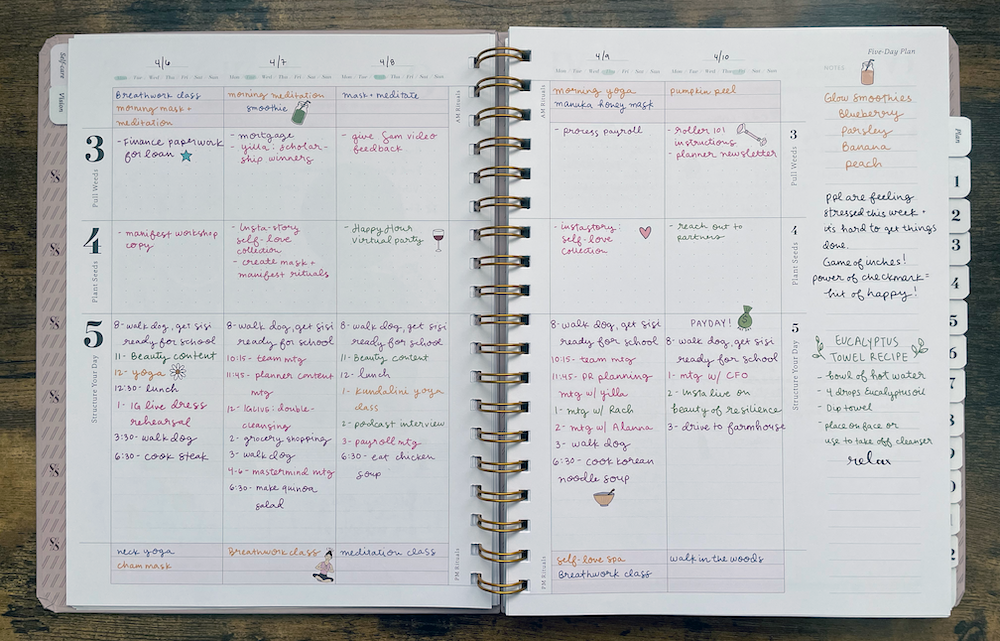 Self-care
Vision
4/6
4/7
4/8
Mon / Tue / Wed / Thu / Fri / Sat / Sun
Mon / Tue / Wed / Thu / Fri / Sat / Sun
Mon / Tue / Wed / Thu / Fri / Sat / Sun
AM Rituals
Breathwork class
morning mask +
meditation
morning meditation
smoothie
mask + meditate
3
Pull Weeds
- Finance paperwork
for loan
- mortgage
- yilla: scholar-
ship winners
- give Sam video
feedback
4
Plant Seeds
- manifest workshop
copy
- insta-story
self-love
collection
- create mask +
manifest rituals
- Happy Hour
virtual party
5
Structure Your Day
8- walk dog, get sisi
ready for school
11- Beauty content
12- yoga
12:30- lunch
1- IG live dress
rehearsal
3:30- walk dog
6:30- cook steak
8- walk dog, get sisi
ready for school
10:15- team mtg
11:45- planner content
mtg
12- IGLIVE: double-
cleansing
2- grocery shopping
3- walk dog
4-6- mastermind mtg
6:30- make quinoa
salad
8- walk dog, get sisi
ready for school
11- Beauty content
12- lunch
1- kundalini yoga
class
2- podcast interview
3- payroll mtg
6:30- eat chicken
soup
PM Rituals
neck yoga
cham mask
Breathwork class
meditation class
4/9
4/10
Five-Day Plan
Mon / Tue / Wed / Thu / Fri / Sat / Sun
Mon / Tue / Wed / Thu / Fri / Sat / Sun
AM Rituals
morning yoga
manuka honey mask
pumpkin peel
3
Pull Weeds
- process payroll
- roller 101
instructions
- planner newsletter
4
Plant Seeds
- instastory:
self-love
collection
- reach out to
partners
5
Structure Your Day
8- walk dog, get sisi
ready for school
10:15- team mtg
11:45- PR planning
mtg w/ yilla
1- mtg w/ Rach
2- mtg w/ Alanna
3- walk dog
6:30- cook korean
noodle soup
PAYDAY!
8- walk dog, get sisi
ready for school
1- mtg w/ CFO
2- insta live on
beauty of resilience
3- drive to farmhouse
PM Rituals
self-love spa
Breathwork class
walk in the woods
NOTES
Glow smoothies
Blueberry
parsley
Banana
peach
ppl are feeling
stressed this week +
it's hard to get things
done.
Game of inches!
power of checkmark =
hit of happy!
EUCALYPTUS
TOWEL RECIPE
- bowl of hot water
- 4 drops Eucalyptus oil
- Dip towel
- place on face or
use to take off cleanser
relax
Plan
1
2
3
4
5
6
7
8
9